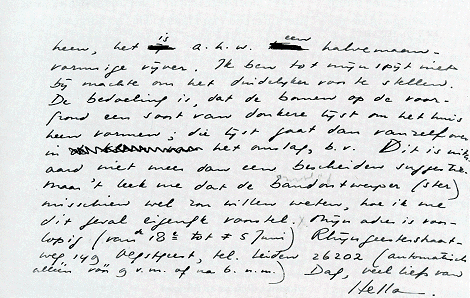 heen, het is a.h.w. een halvemaan-
vormige vijver. Ik ben tot mijn spijt niet
bij machte om het duidelijker voor te stellen.
De bedoeling is, dat de bomen op de voor-
grond een soort van donkere lijst om het huis
heen vormen; die lijst gaat dan vanzelf over
in het omslag, b.v. Dit is uiter-
aard niet meer dan een bescheiden suggestie.
maar 't leek me dat de bandontwerper (ster)
misschien wel zou willen weten, hoe ik me
dit geval eigenlijk voorstel. Mijn adres is voor-
lopig (van de 18e tot ± 5 Juni) Rhijngeesterstraat-
weg 149 Oegstgeest, tel. Leiden 26202 (automatisch
alléén vóór 9 v.m. of na 6 n.m.) Dag, veel liefs van
Hella